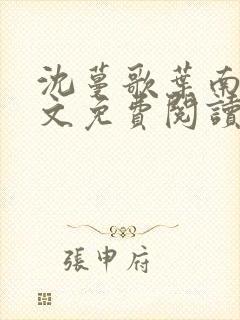 沈蔓歌葉南
文免費閱讀
張申府